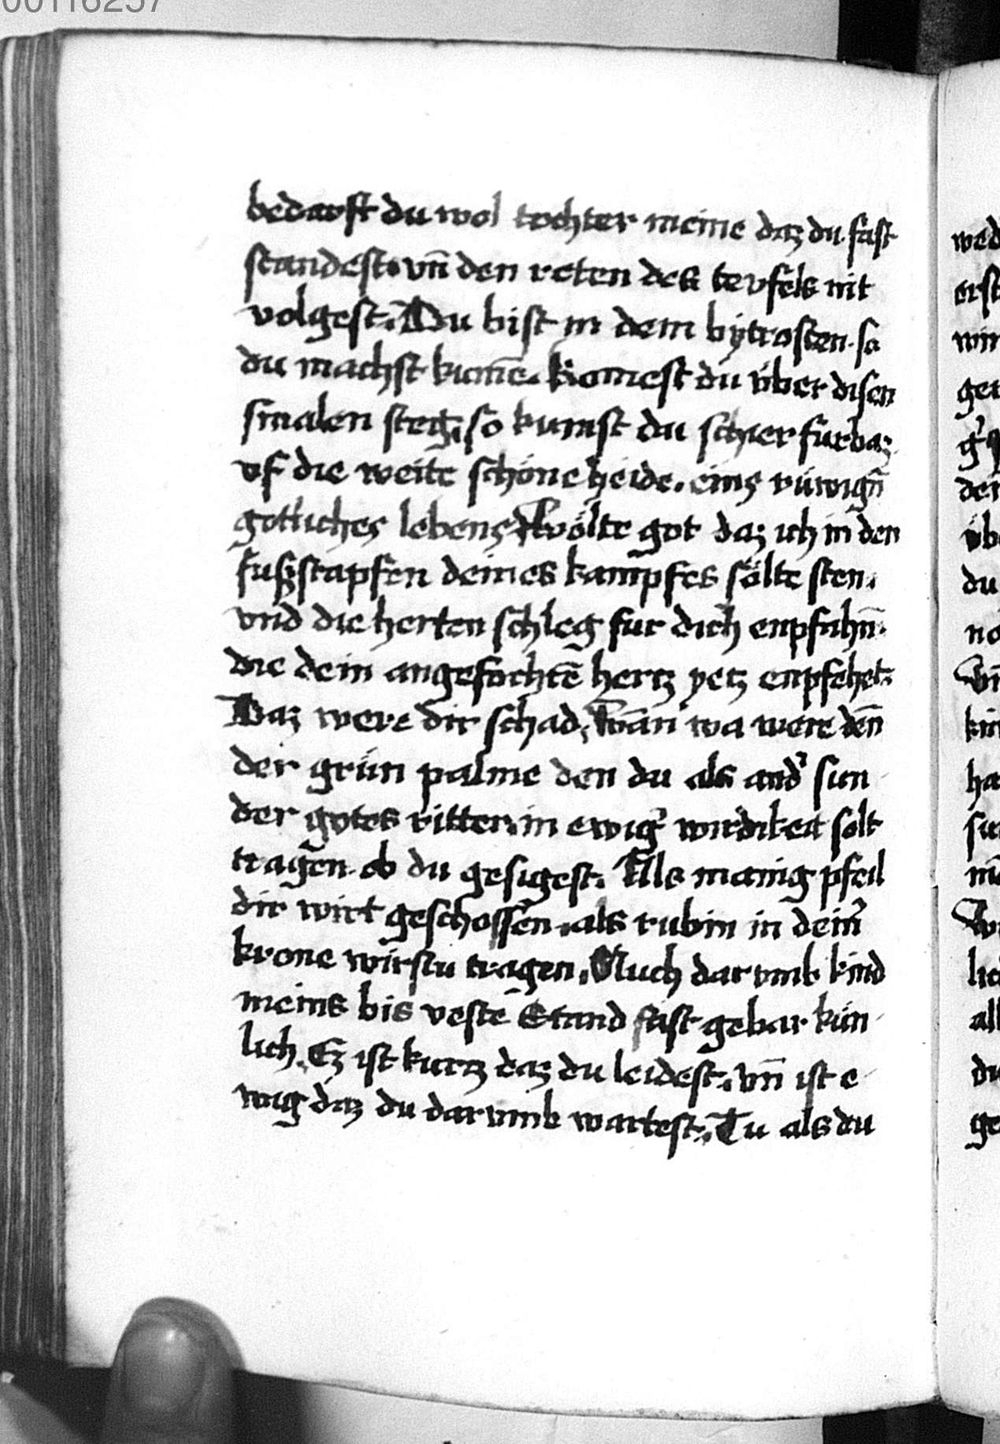 00116257
bedarft du wol tochter meine daz du fast
standest. vn̄ den reten des tevfels nit
volgest. Du bist in dem bÿtrosten. so
du machst kume̅. Komest du v̈ber disen
smalen steg, so kumst du schier furbaz
vf die weite schöne heide. eins rüwign̅
gotliches lebens Wölte got daz ich in den
fußstapfen deines kampfes sölte sten.
vnd die herten schleg fur dich enpfahn̅.
die dein angefochte̅ hertz yetz enpfehet
Daz were dir schad, Wan wa were de̅n
der grün palme den du als and' sun
der gotes ritter. in ewig' wirdikeit solt
tragen. ob du gesigest. Als manig pfeil
dir wirt geschossen. als rubin in dein'
krone wirstu tragen. Auch darvmb kind
meins bis veste Stand fast gebar kün
lich. Ez ist kurtz daz du leidest. vn̄ ist e
wig daz du darvmb wartest. Tu als du
wed
erst
ger
den
v̈be
du
ha
all
du
ge